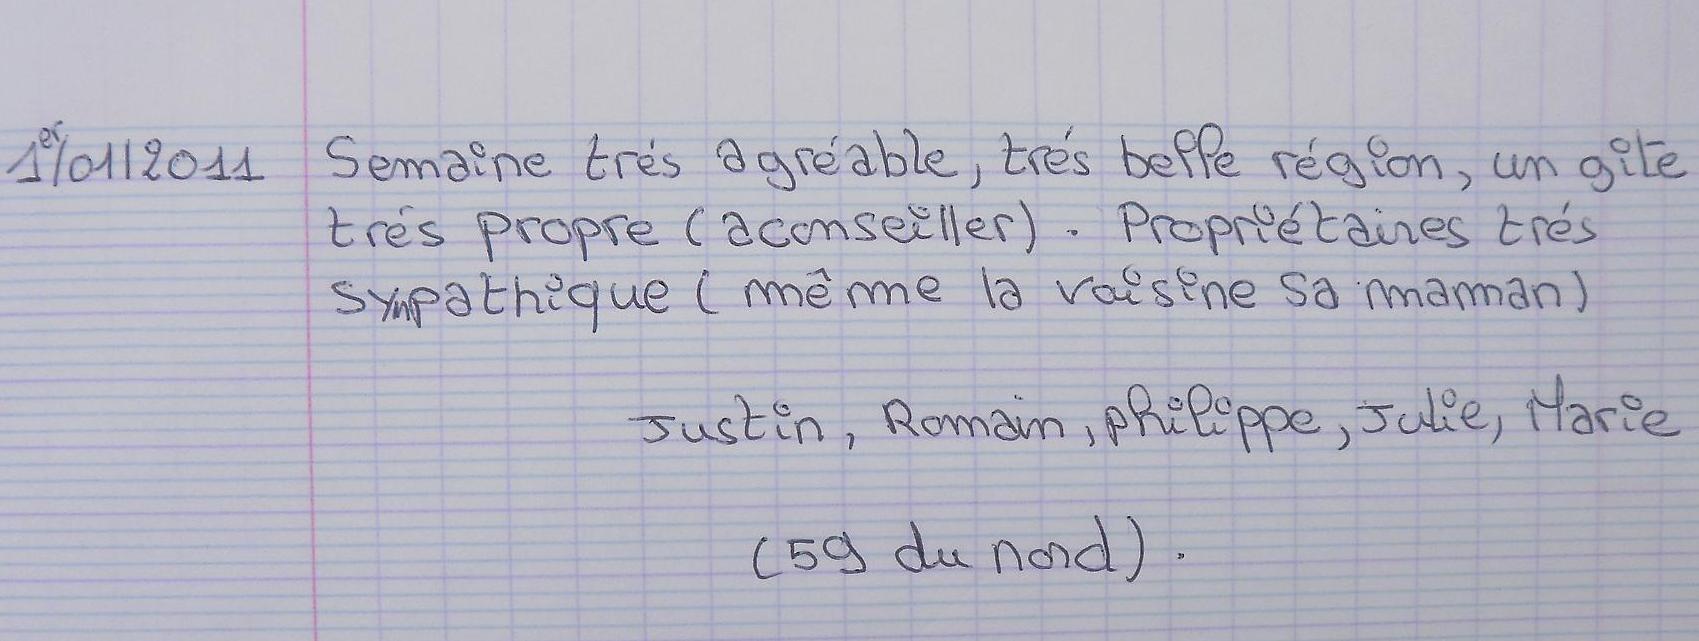 1er/01/2011 Semaine trés agréable, trés belle région, un gîte
trés propre (aconseiller). Propriétaires trés
sympathique (même la voisine sa maman)
Justin, Romain, philippe, Julie, Marie
(59 du nord).